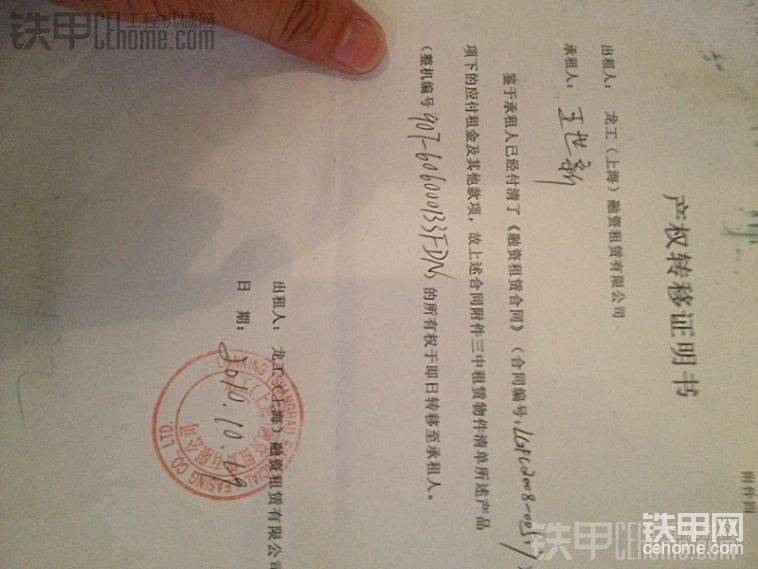 附件四
产权转移证明书
出租人： 龙工（上海）融资租赁有限公司
承租人： 王世新
鉴于承租人已经付清了《融资租赁合同》（合同编号：LGFL2008-00517）
项下的应付租金及其他款项，故上述合同附件三中租赁物件清单所述产品
（整机编号 907-606000133FDN 的所有权于即日转移至承租人。
出租人： 龙工（上海）融资租赁有限公司
日 期： 2010.10.29
铁甲 工程机械网
CEhome.com
铁甲网
cehome.com